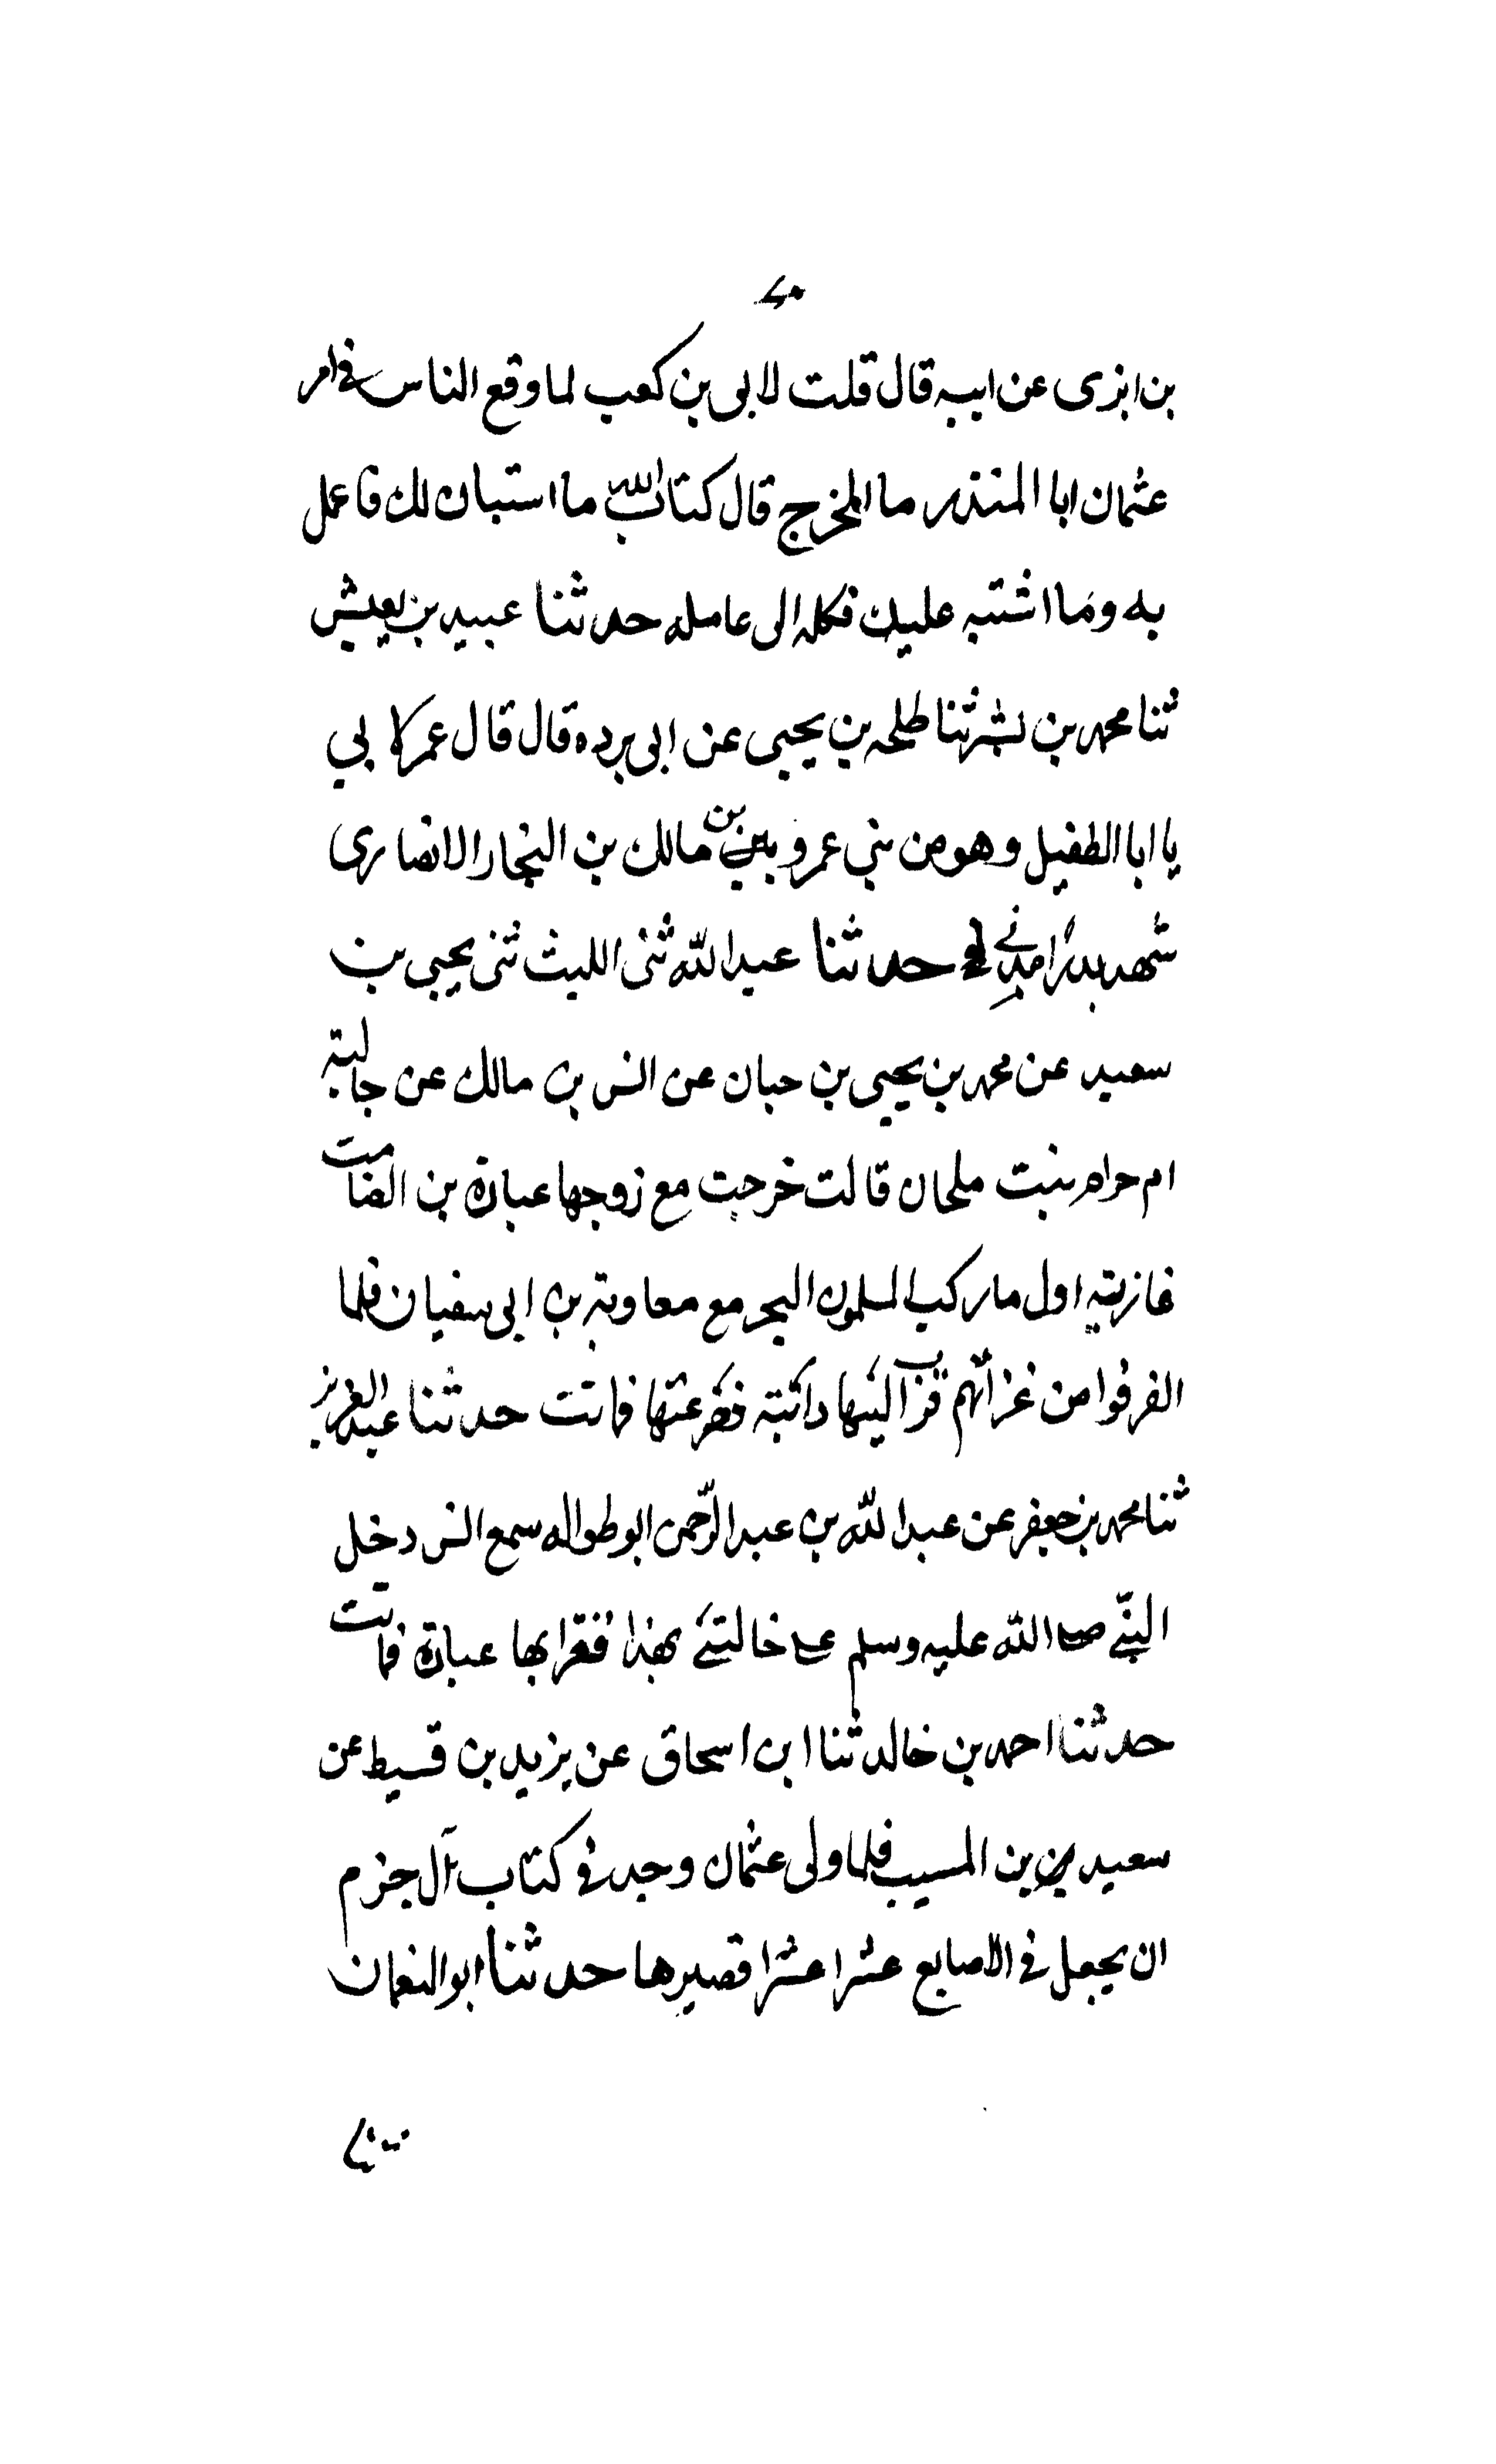 بن ابزى عن ابيه قال قلت لابى بن كعب لما وقع الناس فى امر
عثمان ابا المنذر ما المخرج قال كتاب الله ما استبان لك فاعمل
به وما اشتبه عليك فكله الى عامله حدثنا عبيد بن يعيش
ثنا محمد بن بشر ثنا طلحه بن يحيى عن ابى برده قال قال عمر لابي
يا ابا الطفيل وهو من بني عمرو بن مالك بن النجار الانصارى
شهد بدرا مدني حدثنا عبد الله ثنى الليث ثنى يحيى بن
سعيد عن محمد بن يحيى بن حبان عن انس بن مالك عن خالته
ام حرام بنت ملحان قالت خرجت مع زوجها عبادة بن الصامت
غازية اول ما ركب المسلمون البحر مع معاوية بن ابى سفيان فلما
انصرفوا من غزاتهم قرب اليها دابة فصرعتها فماتت حدثنا عبد العزيز
ثنا محمد بن جعفر عن عبد الله بن عبد الرحمن ابو طواله سمع انس دخل
النبي صلى الله عليه وسلم على خالتي بهذا فغزا بها عبادة فماتت
حدثنا احمد بن خالد ثنا ابن اسحاق عن يزيد بن قسيط عن
سعيد بن المسيب فلما ولى عثمان وجد فى كتاب آل حزم
ان يجعل فى الاصابع عشرا عشرا فصيرها حدثنا ابو النعمان